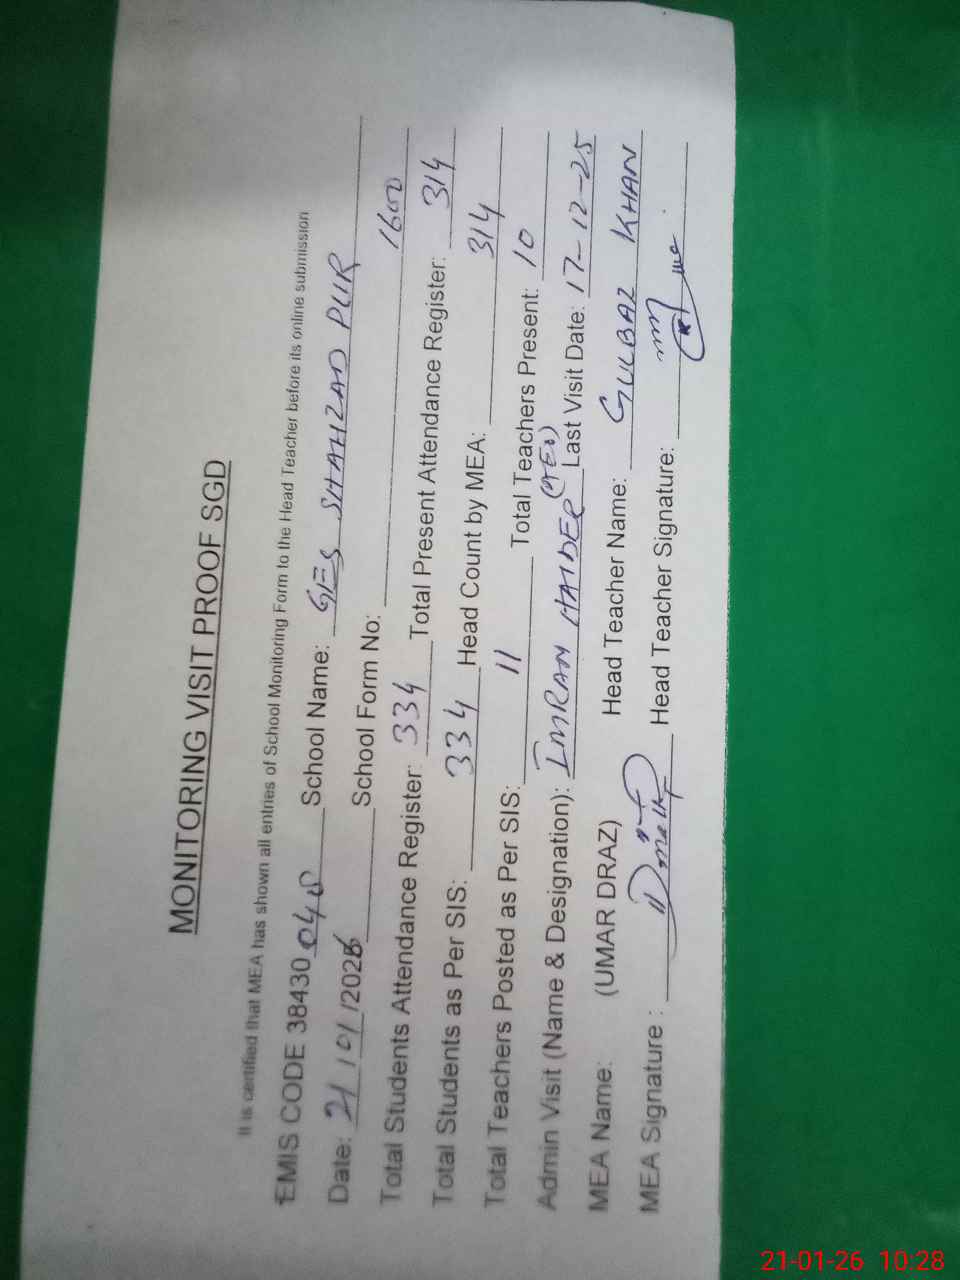 MONITORING VISIT PROOF SGD
It is certified that MEA has shown all entries of School Monitoring Form to the Head Teacher before its online submission
EMIS CODE 38430 040 School Name: GES SHAHZAD PUR
Date: 21/01/2026 School Form No: 1600
Total Students Attendance Register: 334 Total Present Attendance Register: 314
Total Students as Per SIS: 334 Head Count by MEA: 314
Total Teachers Posted as Per SIS: 11 Total Teachers Present: 10
Admin Visit (Name & Designation): IMRAN HAIDER (AEO) Last Visit Date: 17-12-25
MEA Name: (UMAR DRAZ) Head Teacher Name: GULBAZ KHAN
MEA Signature : Head Teacher Signature:
21-01-26 10:28